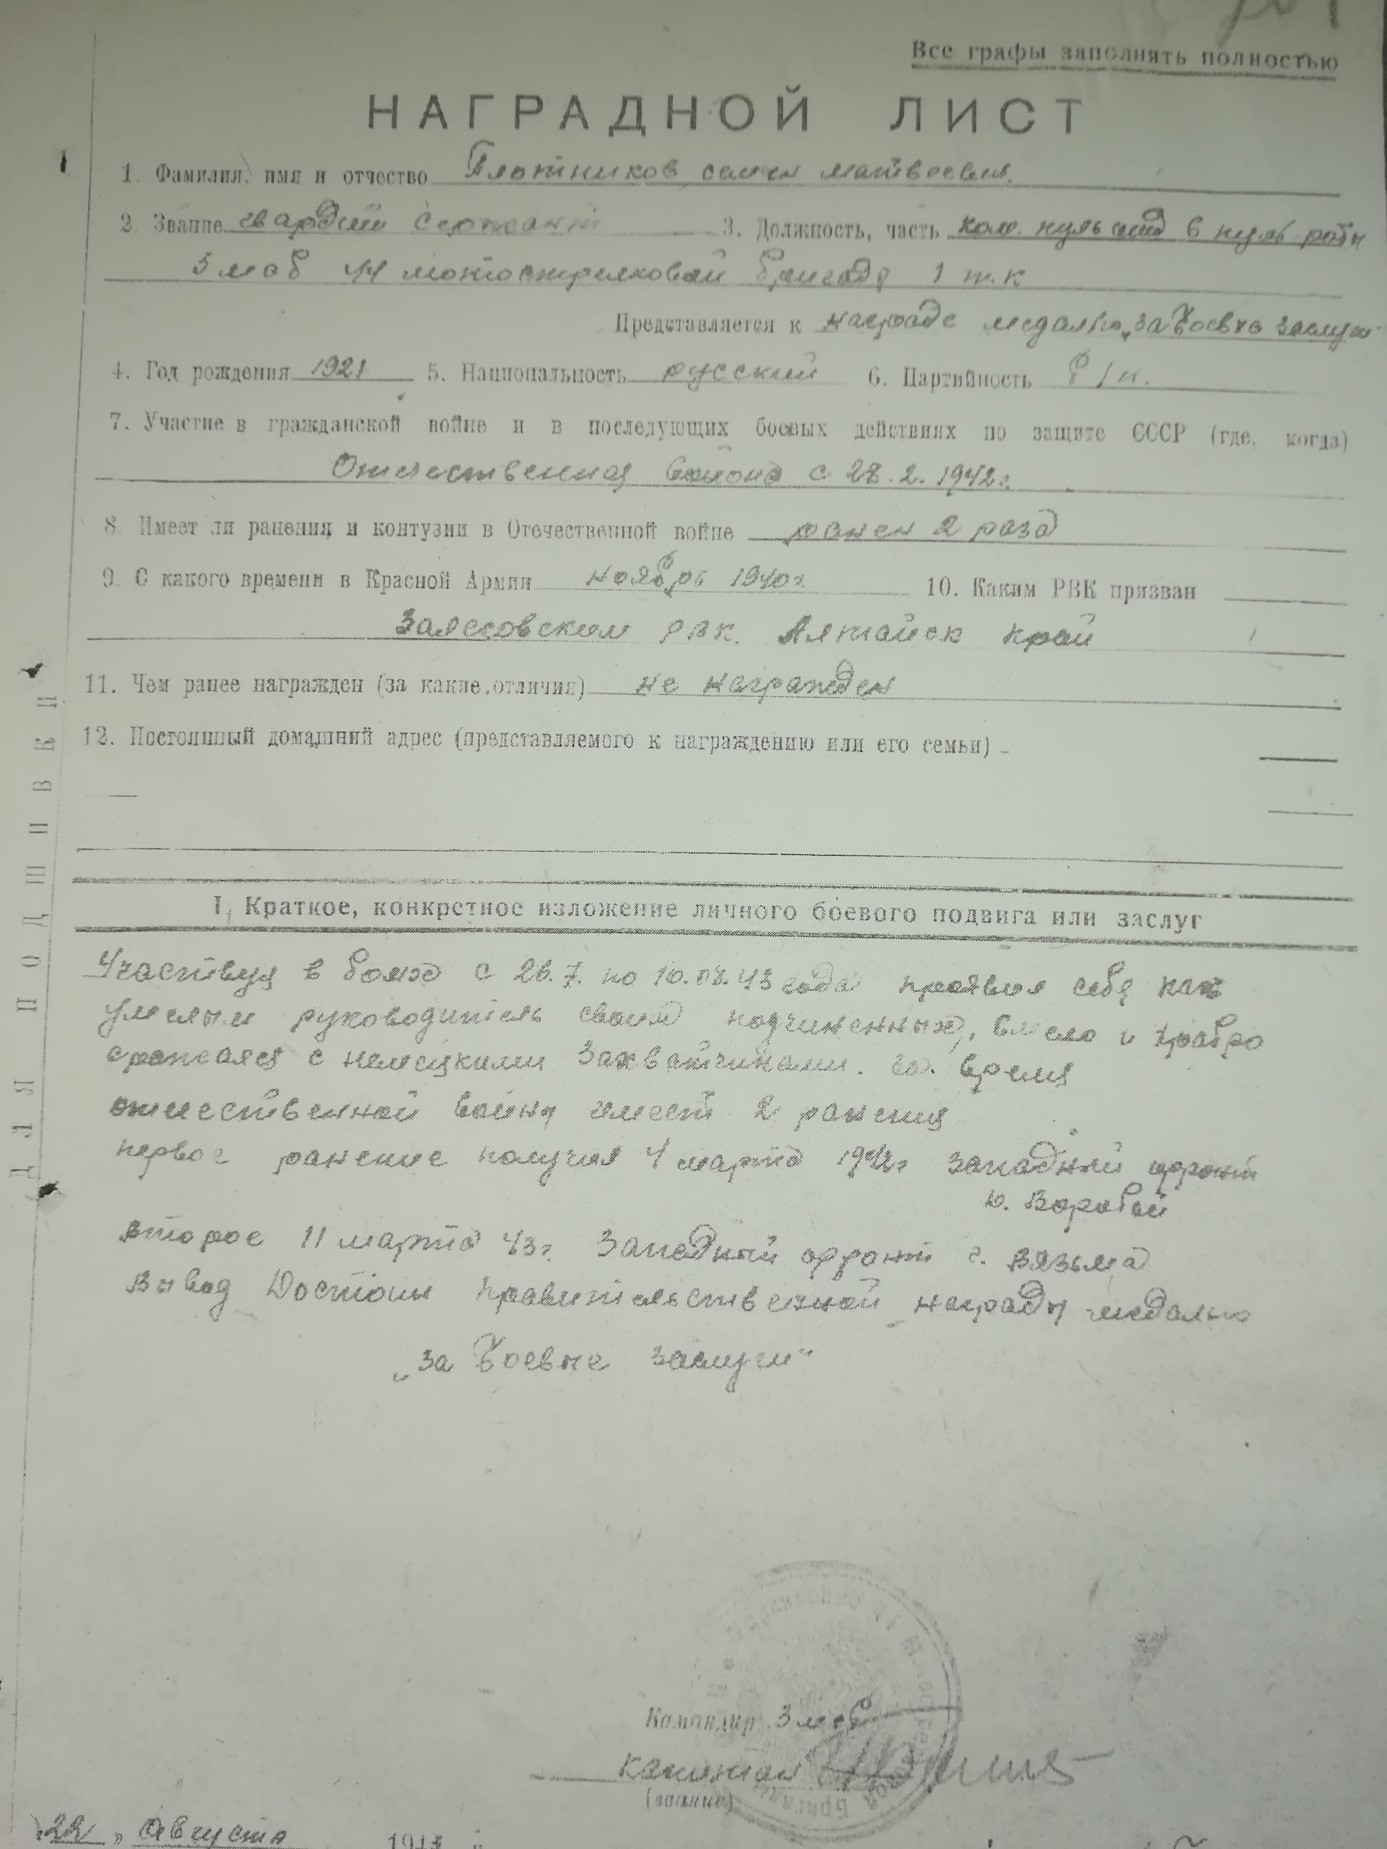 Все графы заполнять полностью
НАГРАДНОЙ ЛИСТ
1. Фамилия, имя и отчество Плотников семен матвеевич.
2. Звание гвардии сержант 3. Должность, часть ком. пульотд 6 пуль роты
3 мсб 44 мотострелковай бригады 1 т.к
Представляется к награде медалью „За Боевые заслуги
4. Год рождения 1921 5. Национальность русский 6. Партийность б/п.
7. Участие в гражданской войне и в последующих боевых действиях по защите СССР (где, когда)
Отечественная с 28.2.1942г
8. Имеет ли ранения и контузии в Отечественной войне ранен 2 раза
9. С какого времени в Красной Армии ноябрь 1940г 10. Каким РВК призван
Залесовским рвк. Алтайск край
11. Чем ранее награжден (за какие отличия) не награжден
12. Постоянный домашний адрес (представляемого к награждению или его семьи)
ДЛЯ ПОДШИВКИ
I. Краткое, конкретное изложение личного боевого подвига или заслуг
Участвуя в боях с 26.7. по 10.08.43 года проявил себя как
умелым руководитель своих подчиненных, смело и храбро
сражаяся с немецкими захватчиками. за время
отечественной войны имеет 2 ранения
первое ранение получил 4 марта 1942г западный фронт
второе 11 марта 43г. Западный фронт г. Вязьма
Вывод Достоин правительственной награды медалью
„за Боевые заслуги"
Командир 3 мсб
капитан
(звание)
„22„ августа 1943 г.